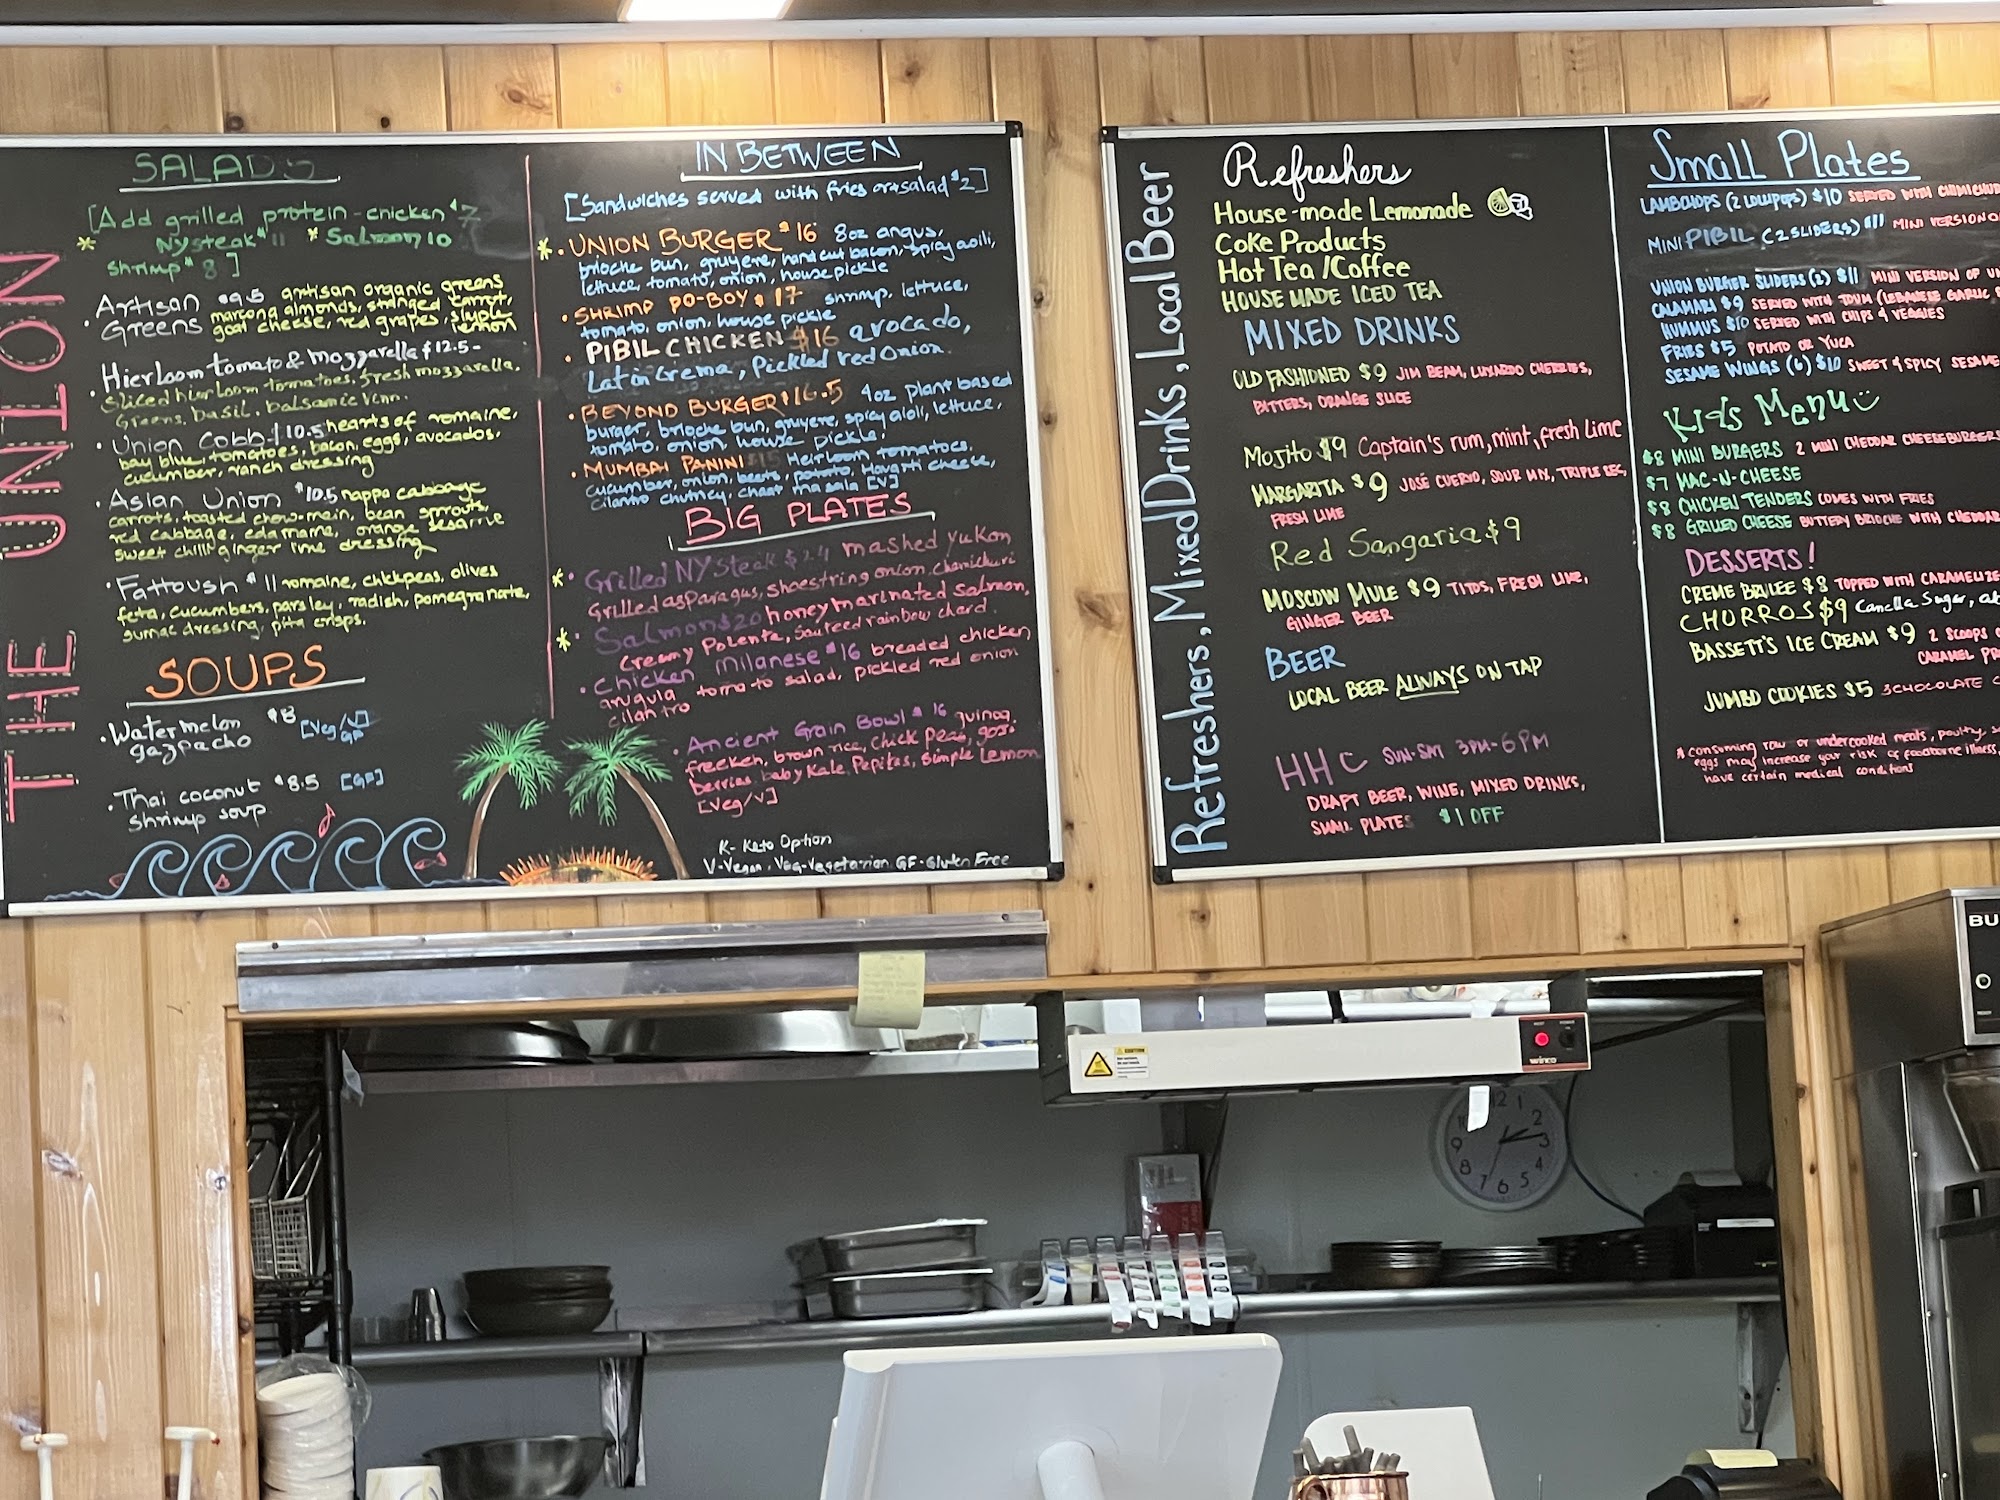 THE UNION
SALADS
[Add grilled protein - chicken $7
* NY steak $11 * Salmon 10
shrimp $8 ]
· Artisan $9.5 artisan organic greens
Greens marcona almonds, stringed carrot,
goat cheese, red grapes, simple lemon
· Hierloom tomato & mozzarella $12.5-
sliced hierloom tomatoes, fresh mozzarella,
Greens, basil, balsamic vinn.
· Union Cobb $10.5 hearts of romaine,
bay blue, tomatoes, bacon, eggs, avocados,
cucumber, ranch dressing
· Asian Union $10.5 nappa cabbage
carrots, toasted chow-main, bean sprouts,
red cabbage, edamame, orange sesame
sweet chilli ginger lime dressing
· Fattoush $11 romaine, chickpeas, olives
feta, cucumbers, parsley, radish, pomegranate,
sumac dressing, pita crisps.
SOUPS
· Watermelon $8 [Veg/V]
gazpacho GF
· Thai coconut $8.5 [GF]
Shrimp soup
IN BETWEEN
[Sandwiches served with fries or salad $2]
* · UNION BURGER $16 8oz angus,
brioche bun, gruyere, hand cut bacon, spicy aoili,
lettuce, tomato, onion, house pickle
· SHRIMP PO-BOY $17 shrimp, lettuce,
tomato, onion, house pickle
· PIBIL CHICKEN $16 avocado,
Latin Crema, Pickled red onion
· BEYOND BURGER $16.5 4oz plant based
burger, brioche bun, gruyere, spicy aioli, lettuce,
tomato, onion, house pickle,
· MUMBAI PANINI $15 Heirloom tomatoes,
cucumber, onion, beets, potato, Havarti cheese,
cilantro chutney, chaat masala [V]
BIG PLATES
* · Grilled NY Steak $24 mashed yukon
Grilled asparagus, shoestring onion, chimichuri
* · Salmon $20 honey marinated salmon,
Creamy Polenta, Sauteed rainbow chard.
· Chicken Milanese $16 breaded chicken
arugula tomato salad, pickled red onion
cilantro
· Ancient Grain Bowl $16 quinoa,
freekeh, brown rice, chick peas, goji
berries, baby Kale, Pepitas, Simple Lemon
[Veg/V]
K- Keto Option
V-Vegan, Veg-Vegetarian GF-Gluten Free
Refreshers, Mixed Drinks, Local Beer
Refreshers
House-made Lemonade
Coke Products
Hot Tea /Coffee
HOUSE MADE ICED TEA
MIXED DRINKS
OLD FASHIONED $9 JIM BEAM, LUXARDO CHERRIES,
BITTERS, ORANGE SLICE
Mojito $9 Captain's rum, mint, fresh lime
MARGARITA $9 JOSÉ CUERVO, SOUR MIX, TRIPLE SEC,
FRESH LIME
Red Sangaria $9
MOSCOW MULE $9 TITOS, FRESH LIME,
GINGER BEER
BEER
LOCAL BEER ALWAYS ON TAP
HHC SUN-SAT 3PM-6PM
DRAFT BEER, WINE, MIXED DRINKS,
SMALL PLATES $1 OFF
Small Plates
LAMBCHOPS (2 LOLLIPOPS) $10 SERVED WITH CHIMICHUR
MINI PIBIL (2 SLIDERS) $11 MINI VERSION O
UNION BURGER SLIDERS (2) $11 MINI VERSION OF UN
CALAMARI $9 SERVED WITH TOUM (LEBANESE GARLIC
HUMMUS $10 SERVED WITH CHIPS & VEGGIES
FRIES $5 POTATO OR YUCA
SESAME WINGS (6) $10 SWEET & SPICY SESAME
Kids Menu
$8 MINI BURGERS 2 MINI CHEDDAR CHEESEBURGERS
$7 MAC-N-CHEESE
$8 CHICKEN TENDERS COMES WITH FRIES
$8 GRILLED CHEESE BUTTERY BRIOCHE WITH CHEDDAR
DESSERTS!
CREME BRULEE $8 TOPPED WITH CARAMELIZE
CHURROS $9 Canella Sugar,
BASSETT'S ICE CREAM $9 2 SCOOPS
CARAMEL
JUMBO COOKIES $5 3 CHOCOLATE C
* consuming raw or undercooked meats, poultry,
eggs may increase your risk of foodborne illness,
have certain medical conditions
BU
CAUTION
winco
12 1 2 3 4 5 6 7 8 9